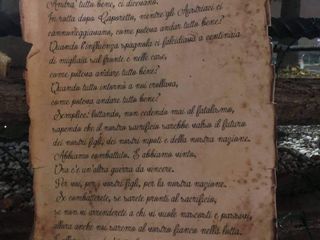 Andrà tutto bene, ci dicevano.
In rotta dopo Caporetto, mentre gli Austriaci ci
cannoneggiavano, come poteva andar tutto bene?
Quando l'influenza spagnola ci falcidiava a centinaia
di migliaia sul fronte e nelle case,
come poteva andare tutto bene?
Quando tutto intorno a noi crollava,
come poteva andar tutto bene?
Semplice: lottando, non cedendo mai al fatalismo,
sapendo che il nostro sacrificio sarebbe valso il futuro
dei nostri figli, dei nostri nipoti e della nostra nazione.
Abbiamo combattuto. E abbiamo vinto.
Ora c'è un'altra guerra da vincere.
Per voi, per i vostri figli, per la nostra nazione.
Se combatterete, se sarete pronti al sacrificio,
se non vi arrenderete a chi vi vuole
allora anche noi saremo al vostro fianco nella lotta.